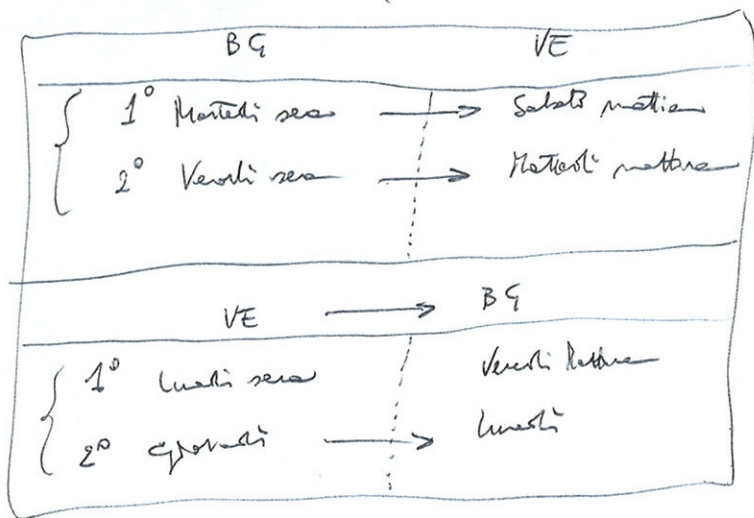 BG VE
1° Martedì sera → Sabato mattina
2° Venerdì sera → Martedì mattina
VE → BG
1° Lunedì sera Venerdì Mattina
2° Giovedì → Lunedì